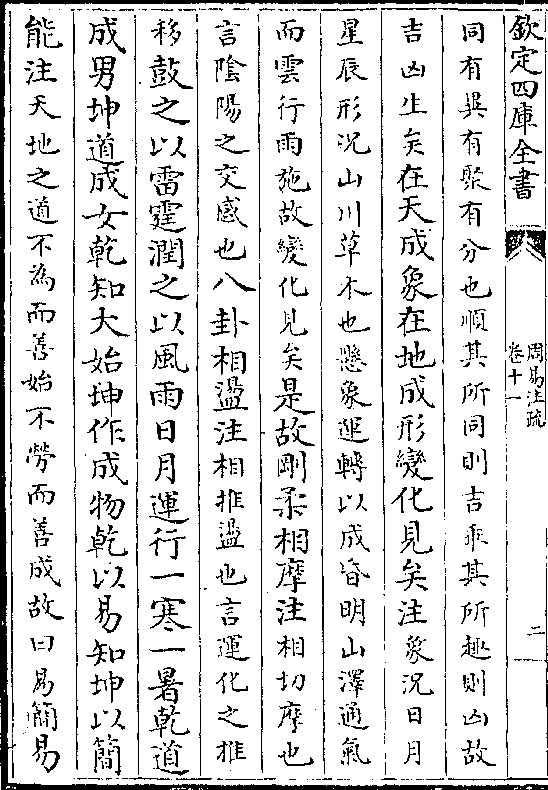 欽定四庫全書
周易注疏
卷十一
二
同有異有聚有分也順其所同則吉乖其所趣則凶故
吉凶生矣在天成象在地成形變化見矣注象況日月
星辰形況山川草木也懸象運轉以成昏明山澤通氣
而雲行雨施故變化見矣是故剛柔相摩注相切摩也
言隂陽之交感也八卦相盪注相推盪也言運化之推
移鼓之以雷霆潤之以風雨日月運行一寒一暑乾道
成男坤道成女乾知大始坤作成物乾以易知坤以簡
能注天地之道不為而善始不勞而善成故曰易簡易